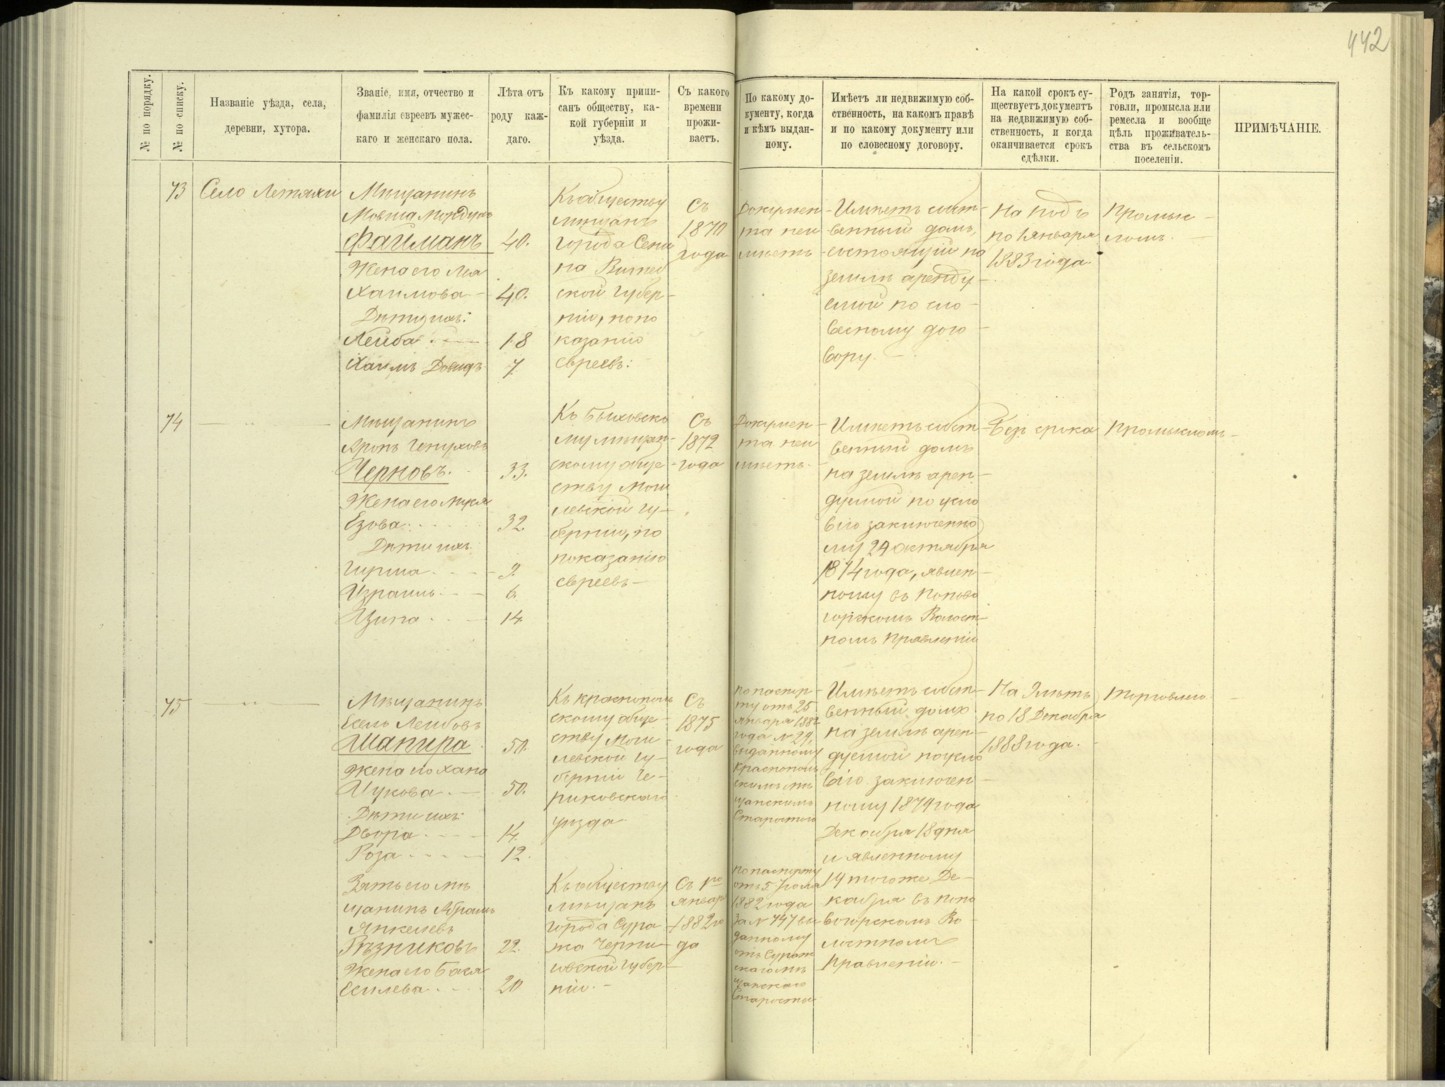 442
№ по порядку.
№ по списку.
Названіе уѣзда, села,
деревни, хутора.
Званіе, имя, отчество и
фамилія евреевъ мужес-
каго и женскаго пола.
Лѣта отъ
роду каж-
даго.
Къ какому припи-
санъ обществу, ка-
кой губерніи и
уѣзда.
Съ какого
времени
прожи-
ваетъ.
По какому до-
кументу, когда
и кѣмъ выдан-
ному.
Имѣетъ ли недвижимую соб-
ственность, на какомъ правѣ
и по какому документу или
по словесному договору.
На какой срокъ су-
ществуетъ документъ
на недвижимую соб-
ственность, и когда
оканчивается срокъ
сдѣлки.
Родъ занятія, тор-
говли, промысла или
ремесла и вообще
цѣль проживатель-
ства въ сельскомъ
поселеніи.
ПРИМѢЧАНІЕ.
73
Село Летяхи
Мѣщанинъ
Мовша
Файманъ
Жена его Лея
Хаимова
Дѣти ихъ:
Лейба
Хаимъ Давидъ
40.
40.
18
7
Къ обществу
мѣщанъ
города Сен
на Витеб
ской Губер-
ніи, по по
казанію
евреевъ.
Съ
1870
года
Докумен
та неи
мѣетъ
Имѣетъ собст
венный домъ,
состоящій на
землѣ аренду-
емой по сло-
весному дого-
вору.
На годъ
по 1 января
1883 года
Промыс-
ломъ.
74
Мѣщанинъ
Аронъ
Черновъ.
Жена его
Езова
Дѣти ихъ
Гирша
Израиль
Ципа
33.
32
9
6
14
Къ Быховско
му мѣщан-
скому обще
ству Моги
левской Гу-
берніи, по
показанію
евреевъ
Съ
1872
года
Докумен
та неи
мѣетъ.
Имѣетъ собст
венный домъ
на землѣ арен-
дуемой по усло
вію заключенно
му 24 октября
1874 года, явлен-
ному въ Попово
горскомъ Волост-
номъ Правленіи
Безъ срока
Промысломъ
75
Мѣщанинъ
Есель Лейбовъ
Шапира
Жена его Хана
Ицкова
Дѣти ихъ:
Двора
Роза
50.
50.
14
12.
Къ Краснополь
скому обще-
ству Моги-
левской гу-
берніи Че-
риковскаго
уѣзда
Съ
1875
года
По паспор-
ту отъ 25
января 1882
года № 29,
выданному
Краснополь
скимъ мѣ
щанскимъ
Старостой
Имѣетъ собст-
венный домъ
на землѣ арен-
дуемой по усло
вію заключен-
ному 1879 года
Декабря 18 дня
и явленному
19 того же Де-
кабря въ Попо
вогорскомъ Во-
лостномъ
Правленіи.
На 9 лѣтъ
по 18 Декабря
1888 года.
Торговлею
Зять его мѣ
щанинъ Абрамъ
Янкелевъ
Рѣзниковъ
Жена его Бася
Есилева
22
20
Къ обществу
мѣщанъ
города Сура
жа Черни-
говской Губер-
ніи.
Съ 1го
Январ
1882 го
да
По паспорту
отъ 5 Іюля
1882 года
за № 747 вы
данному
отъ Сураж
скаго мѣ
щанскаго
Старосты